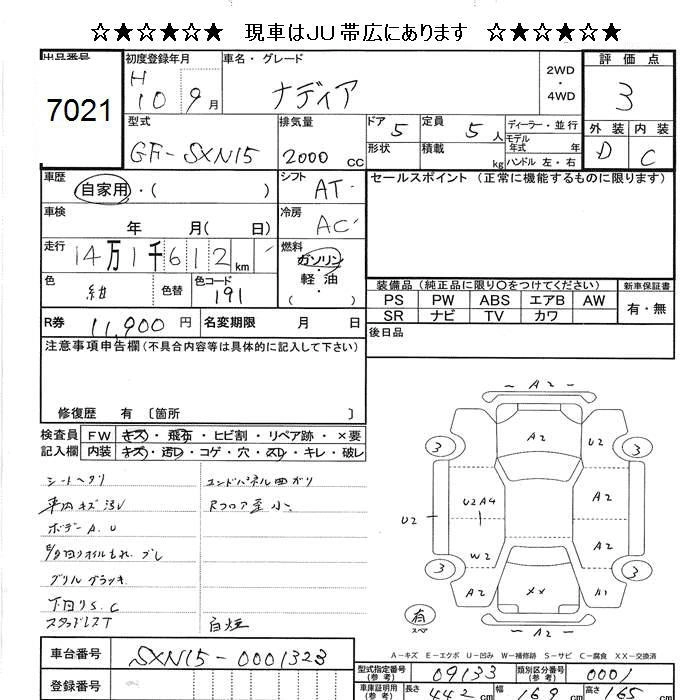 ☆★☆★☆★ 現車はJU帯広にあります ☆★☆★☆★
出品番号
7021
初度登録年月
H 10 9月
車名・グレード
ナディア
2WD
・
4WD
評価点
3
外装 内装
D C
型式
GF-SXN15
排気量
2000 CC
ドア 5
形状
定員 5人
積載 kg
ディーラー・並行
モデル年式 年
ハンドル 左・右
車歴
自家用・( )
シフト AT
セールスポイント (正常に機能するものに限ります)
車検
年 月( 日)
冷房 AC
走行
14万1千612km
燃料
ガソリン
軽・油
( )
色 紺
色替
色コード 191
装備品(純正品に限り○をつけてください)
新車保証書
PS PW ABS エアB AW
SR ナビ TV カワ
有・無
R券 11,900円
名変期限 月 日
後日品
注意事項申告欄(不具合内容等は具体的に記入して下さい)
修復歴 有 〔箇所 〕
検査員
記入欄
FW キズ・飛石・ヒビ割・リペア跡・×要
内装 キズ・汚レ・コゲ・穴・スレ・キレ・破レ
シートヘタリ
車内キズ汚レ
ボデーA.U
オイルもれ
下回りS.C
スタッドレスT
エンドパネル曲ガリ
Rフロア歪小
白煙
A2
3 A2 U2 3
U2 U2A4 A2
W2 A2
3 A2 XX A1 3
有
スペア
A2
A-キズ E-エクボ U-凹み W-補修跡 S-サビ C-腐食 XX-交換済
車台番号 SXN15-0001323
登録番号
型式指定番号(参考) 09133
類別区分番号(参考) 0001
車庫証明用(参考) 長さ 442cm 幅 169cm 高さ 165cm